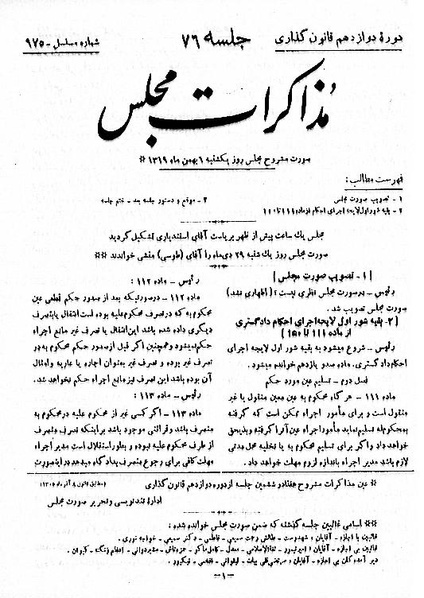 دورهٔ دوازدهم قانون گذاری
جلسه ۷۶
شماره مسلسل - ۹۷۵
مذاکرات مجلس
صورت مشروح مجلس روز یکشنبه ۶ بهمن ماه ۱۳۱۹ *
فهرست مطالب:
۱ - تصویب صورت مجلس
۲ - بقیه شور اول لایحه اجرای احکام از ماده ۱۱۱ تا
۳ - موقع و دستور جلسه بعد - ختم جلسه
مجلس یک ساعت پیش از ظهر بریاست آقای اسفندیاری تشکیل گردید
صورت مجلس روز یک شنبه ۲۹ دی ماه را آقای (طوسی) منشی خواندند *
[ ۱ - تصویب صورت مجلس ]
رئیس - در صورت مجلس نظری نیست؟ (اظهاری نشد)
صورت مجلس تصویب شد.
[ ۲ - بقیه شور اول لایحه اجرای احکام دادگستری
از ماده ۱۱۱ تا ]
رئیس - شروع میشود به بقیه شور اول لایحه اجرای
احکام دادگستری. ماده صد و یازدهم خوانده میشود.
فصل دوم - تسلیم عین مورد حکم
ماده ۱۱۱ - هر گاه محکوم به عین معین منقول یا غیر
منقول است و برای مأمور اجراء ممکن است که گرفته
به محکوم له تسلیم نماید مأمور اجراء عین آنرا گرفته و بذیحق
خواهد داد و اگر برای تسلیم محکوم به یا تخلیه محل مدتی
لازم باشد مدیر اجراء باندازه لزوم مهلت خواهد داد.
رئیس - ماده ۱۱۲:
ماده ۱۱۲ - در صورتیکه بعد از صدور حکم قطعی عین
محکوم به که در تصرف محکوم علیه بوده است انتقال یا بتصرف
دیگری داده شده باشد این انتقال یا تصرف غیر مانع اجراء
حکم نمیشود و همچنین اگر قبل از صدور حکم محکوم به در
تصرف غیر بوده و تصرف غیر بعنوان اجاره یا عاریه و امثال
آن بوده باشد این تصرف نیز مانع اجراء حکم نخواهد شد.
رئیس - ماده ۱۱۳:
ماده ۱۱۳ - اگر کسی غیر از محکوم علیه در محکوم به
متصرف باشد و قرائنی موجود باشد بر اینکه تصرف متصرف
از طرف محکوم علیه نبوده و بطور استقلال است مدیر اجراء
مهلت کافی برای رجوع متصرف بدادگاه میدهد در این صورت
* عین مذاکرات مشروح هفتاد و ششمین جلسه از دوره دوازدهم قانون گذاری
اداره تندنویسی و تحریر صورت مجلس
** اسامی غائبین جلسه گذشته که ضمن صورت مجلس خوانده شده:
- ۱ -